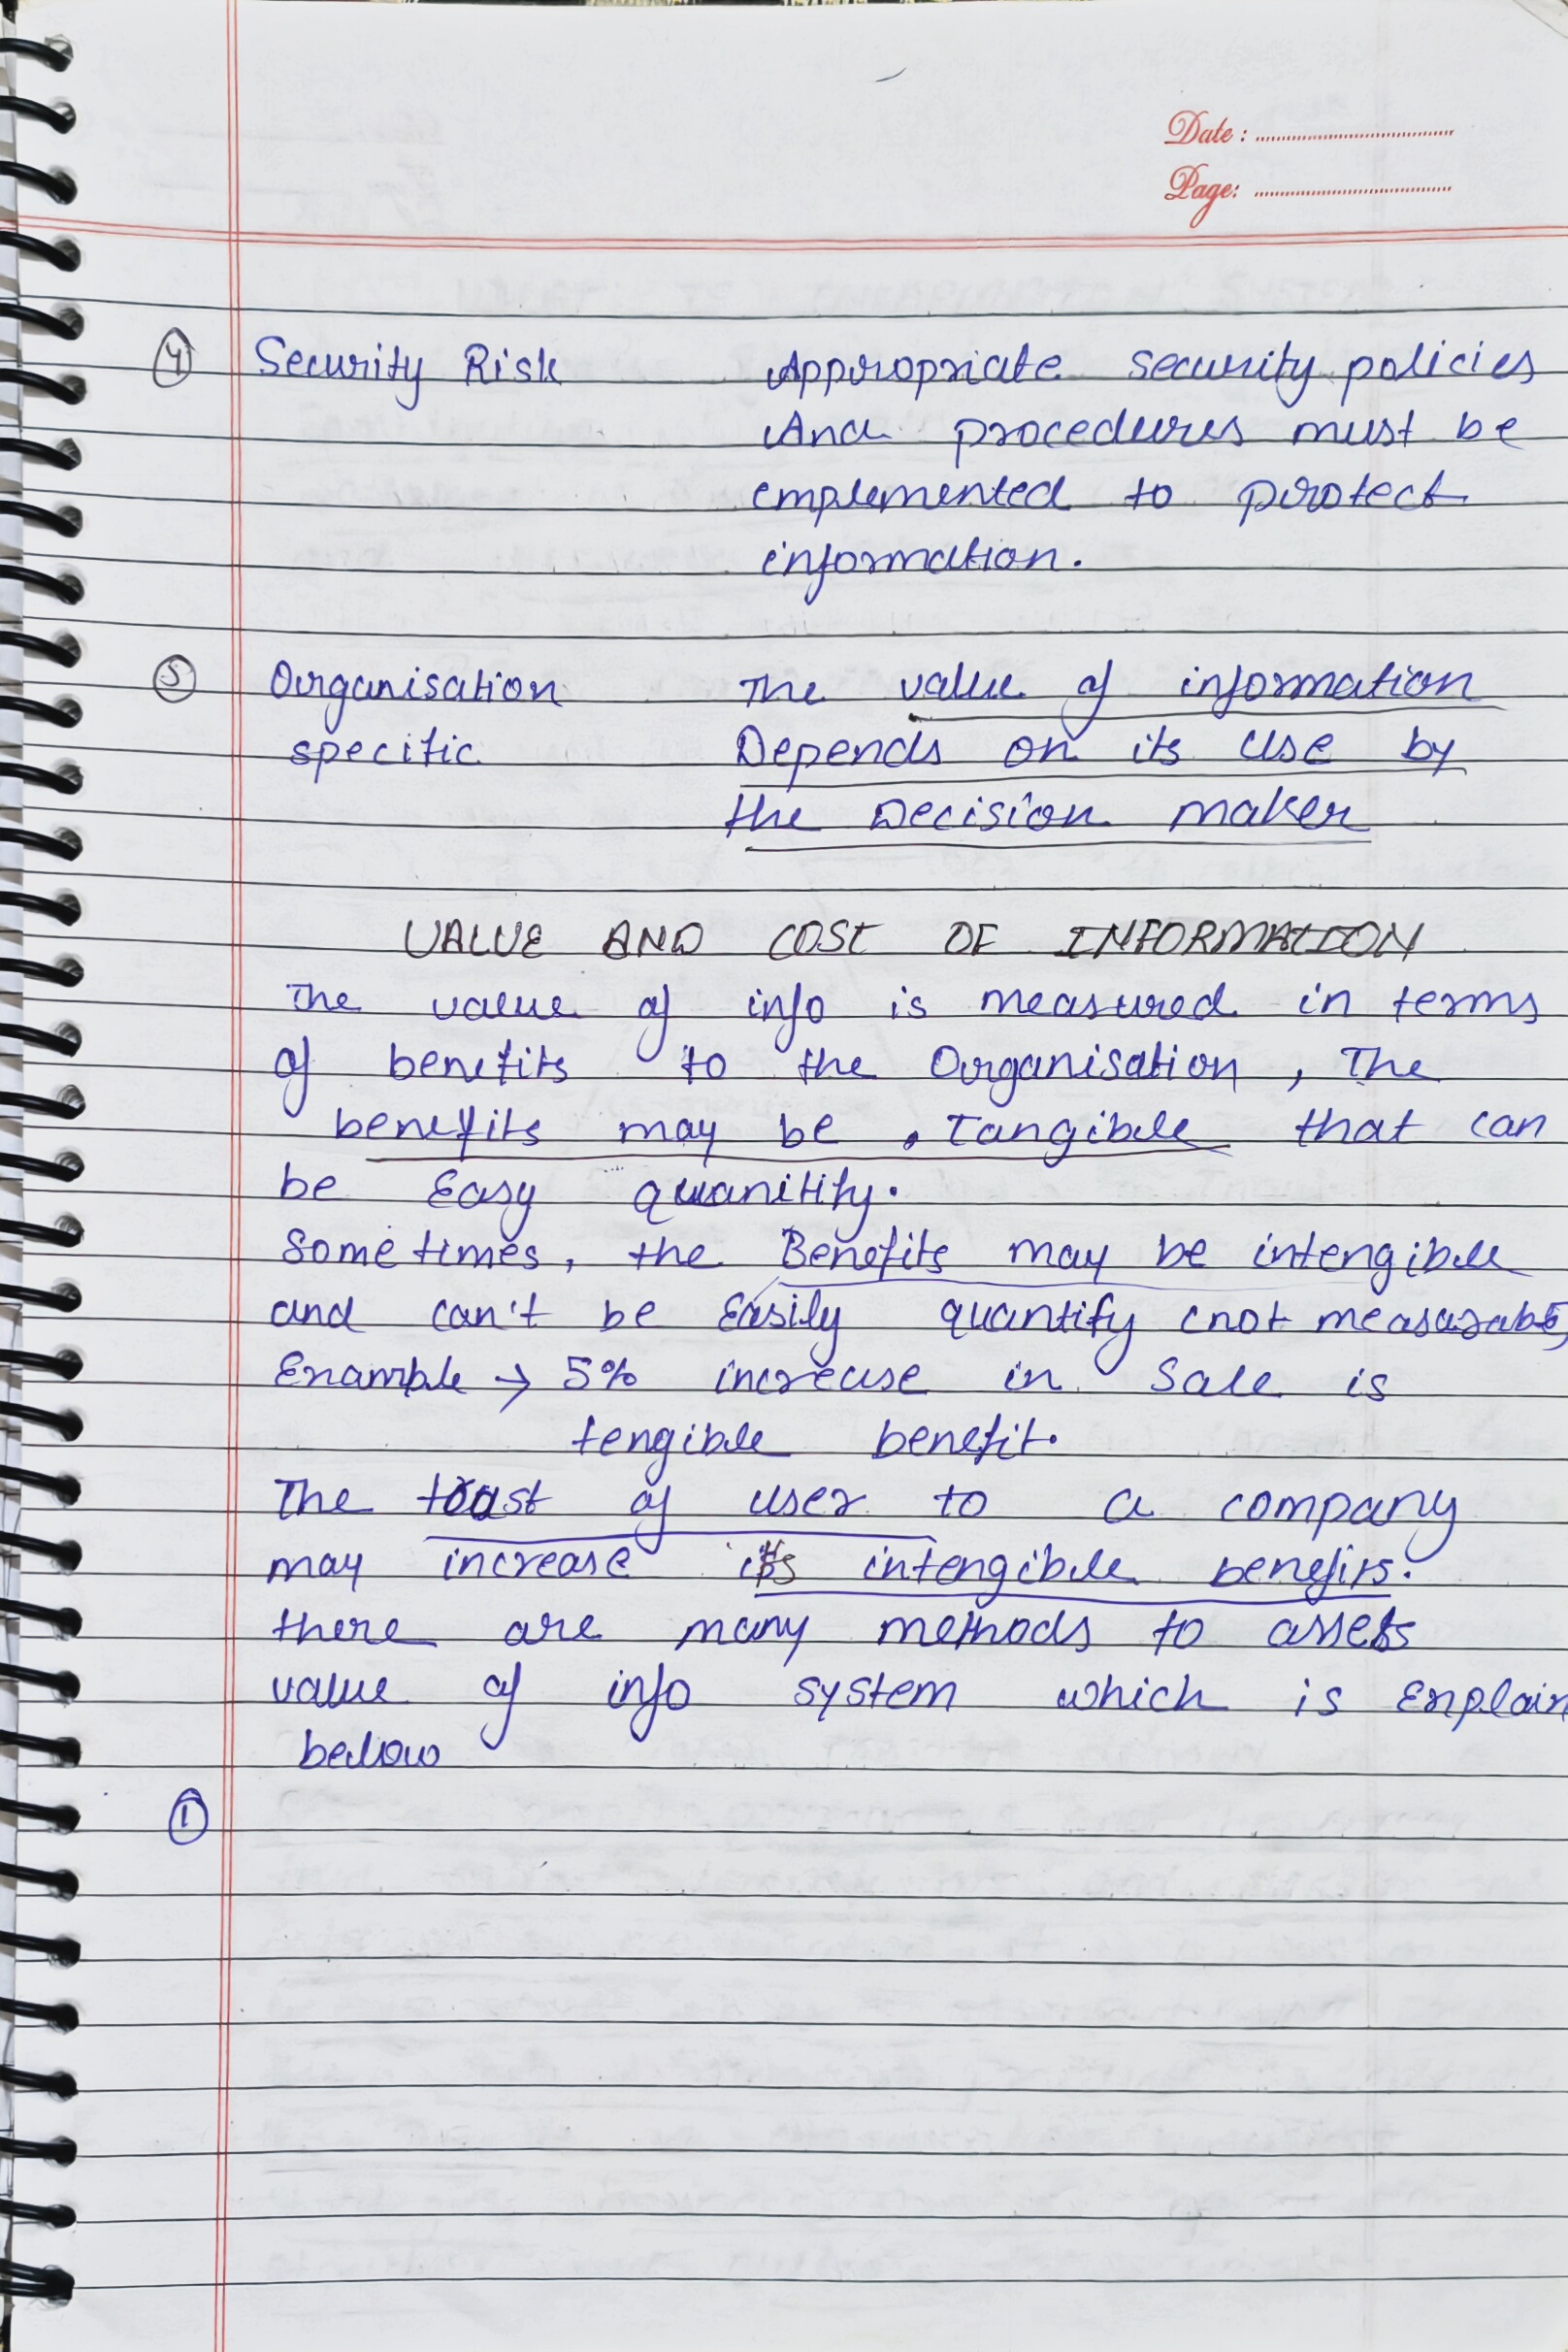 Date :
Page:
④ Security Risk Appropriate security policies
And procedures must be
emplemented to protect
information.
⑤ Organisation The value of information
specific Depends on its use by
the Decision maker
VALUE AND COST OF INFORMATION
The value of info is measured in terms
of benefits to the Organisation, The
benefits may be, Tangible that can
be Easy quanitity.
Sometimes, the Benefits may be intengible
and can't be Easily quantify (not measurable)
Example → 5% increase in Sale is
tengible benefit.
The trust of user to a company
may increase its intengible benefits.
there are many methods to assets
value of info system which is Explain
below
①